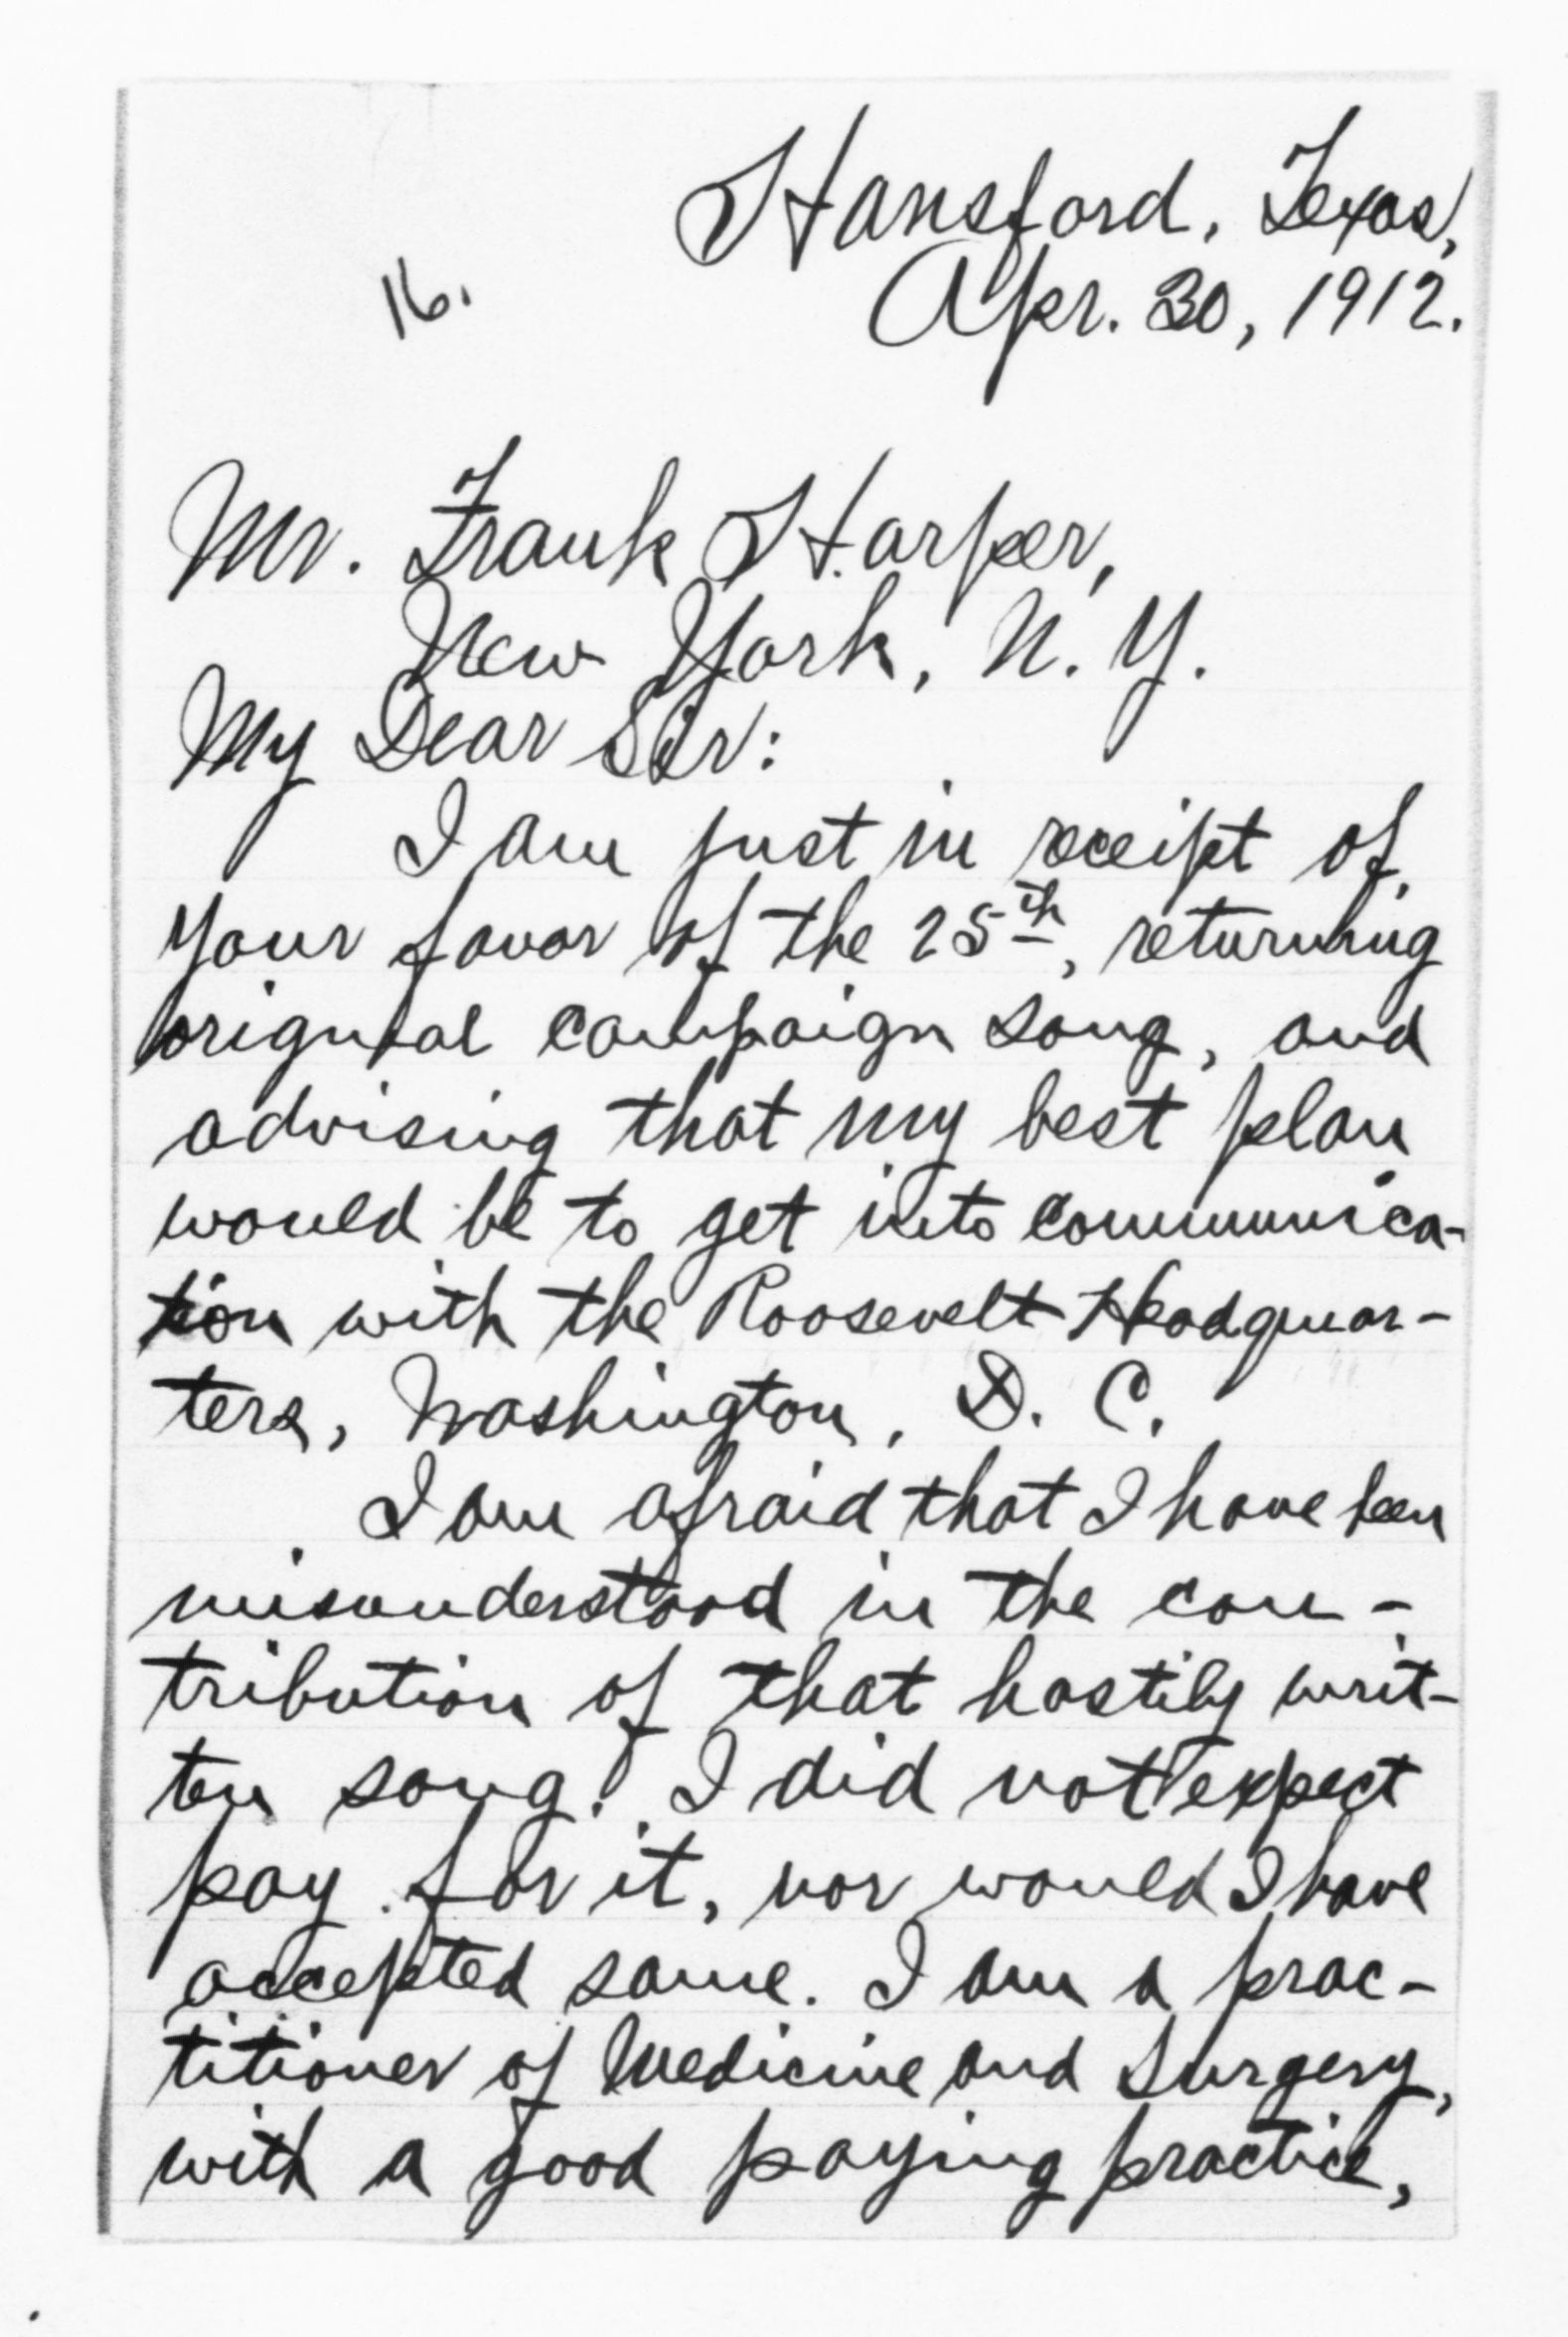 Hansford, Texas,
16.
Apr. 30, 1912.
Mr. Frank Harper,
New York, N. Y.
My Dear Sir:
I am just in receipt of
your favor of the 25th, returning
original campaign song, and
advising that my best plan
would be to get into communica-
tion with the Roosevelt Headquar-
ters, Washington, D. C.
I am afraid that I have been
misunderstood in the con-
tribution of that hastily writ-
ten song. I did not expect
pay for it, nor would I have
accepted same. I am a prac-
titioner of Medicine and Surgery,
with a good paying practice,